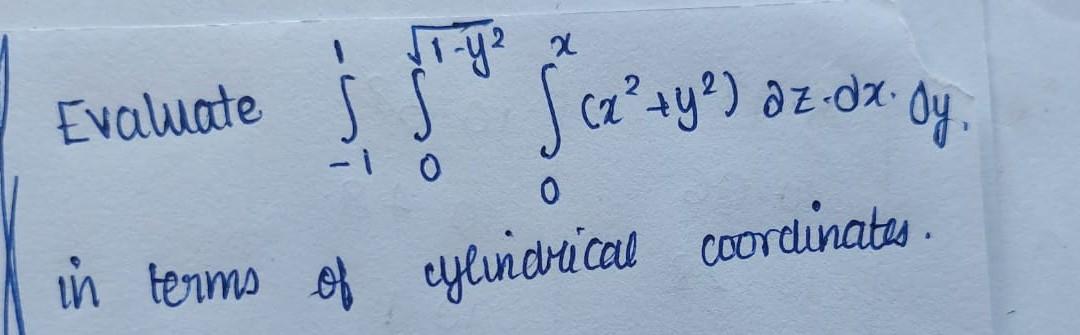 Evaluate ∫_{-1}^{1} ∫_{0}^{√(1-y²)} ∫_{0}^{x} (x²+y²) ∂z·dx·dy.
in terms of cylindrical coordinates.